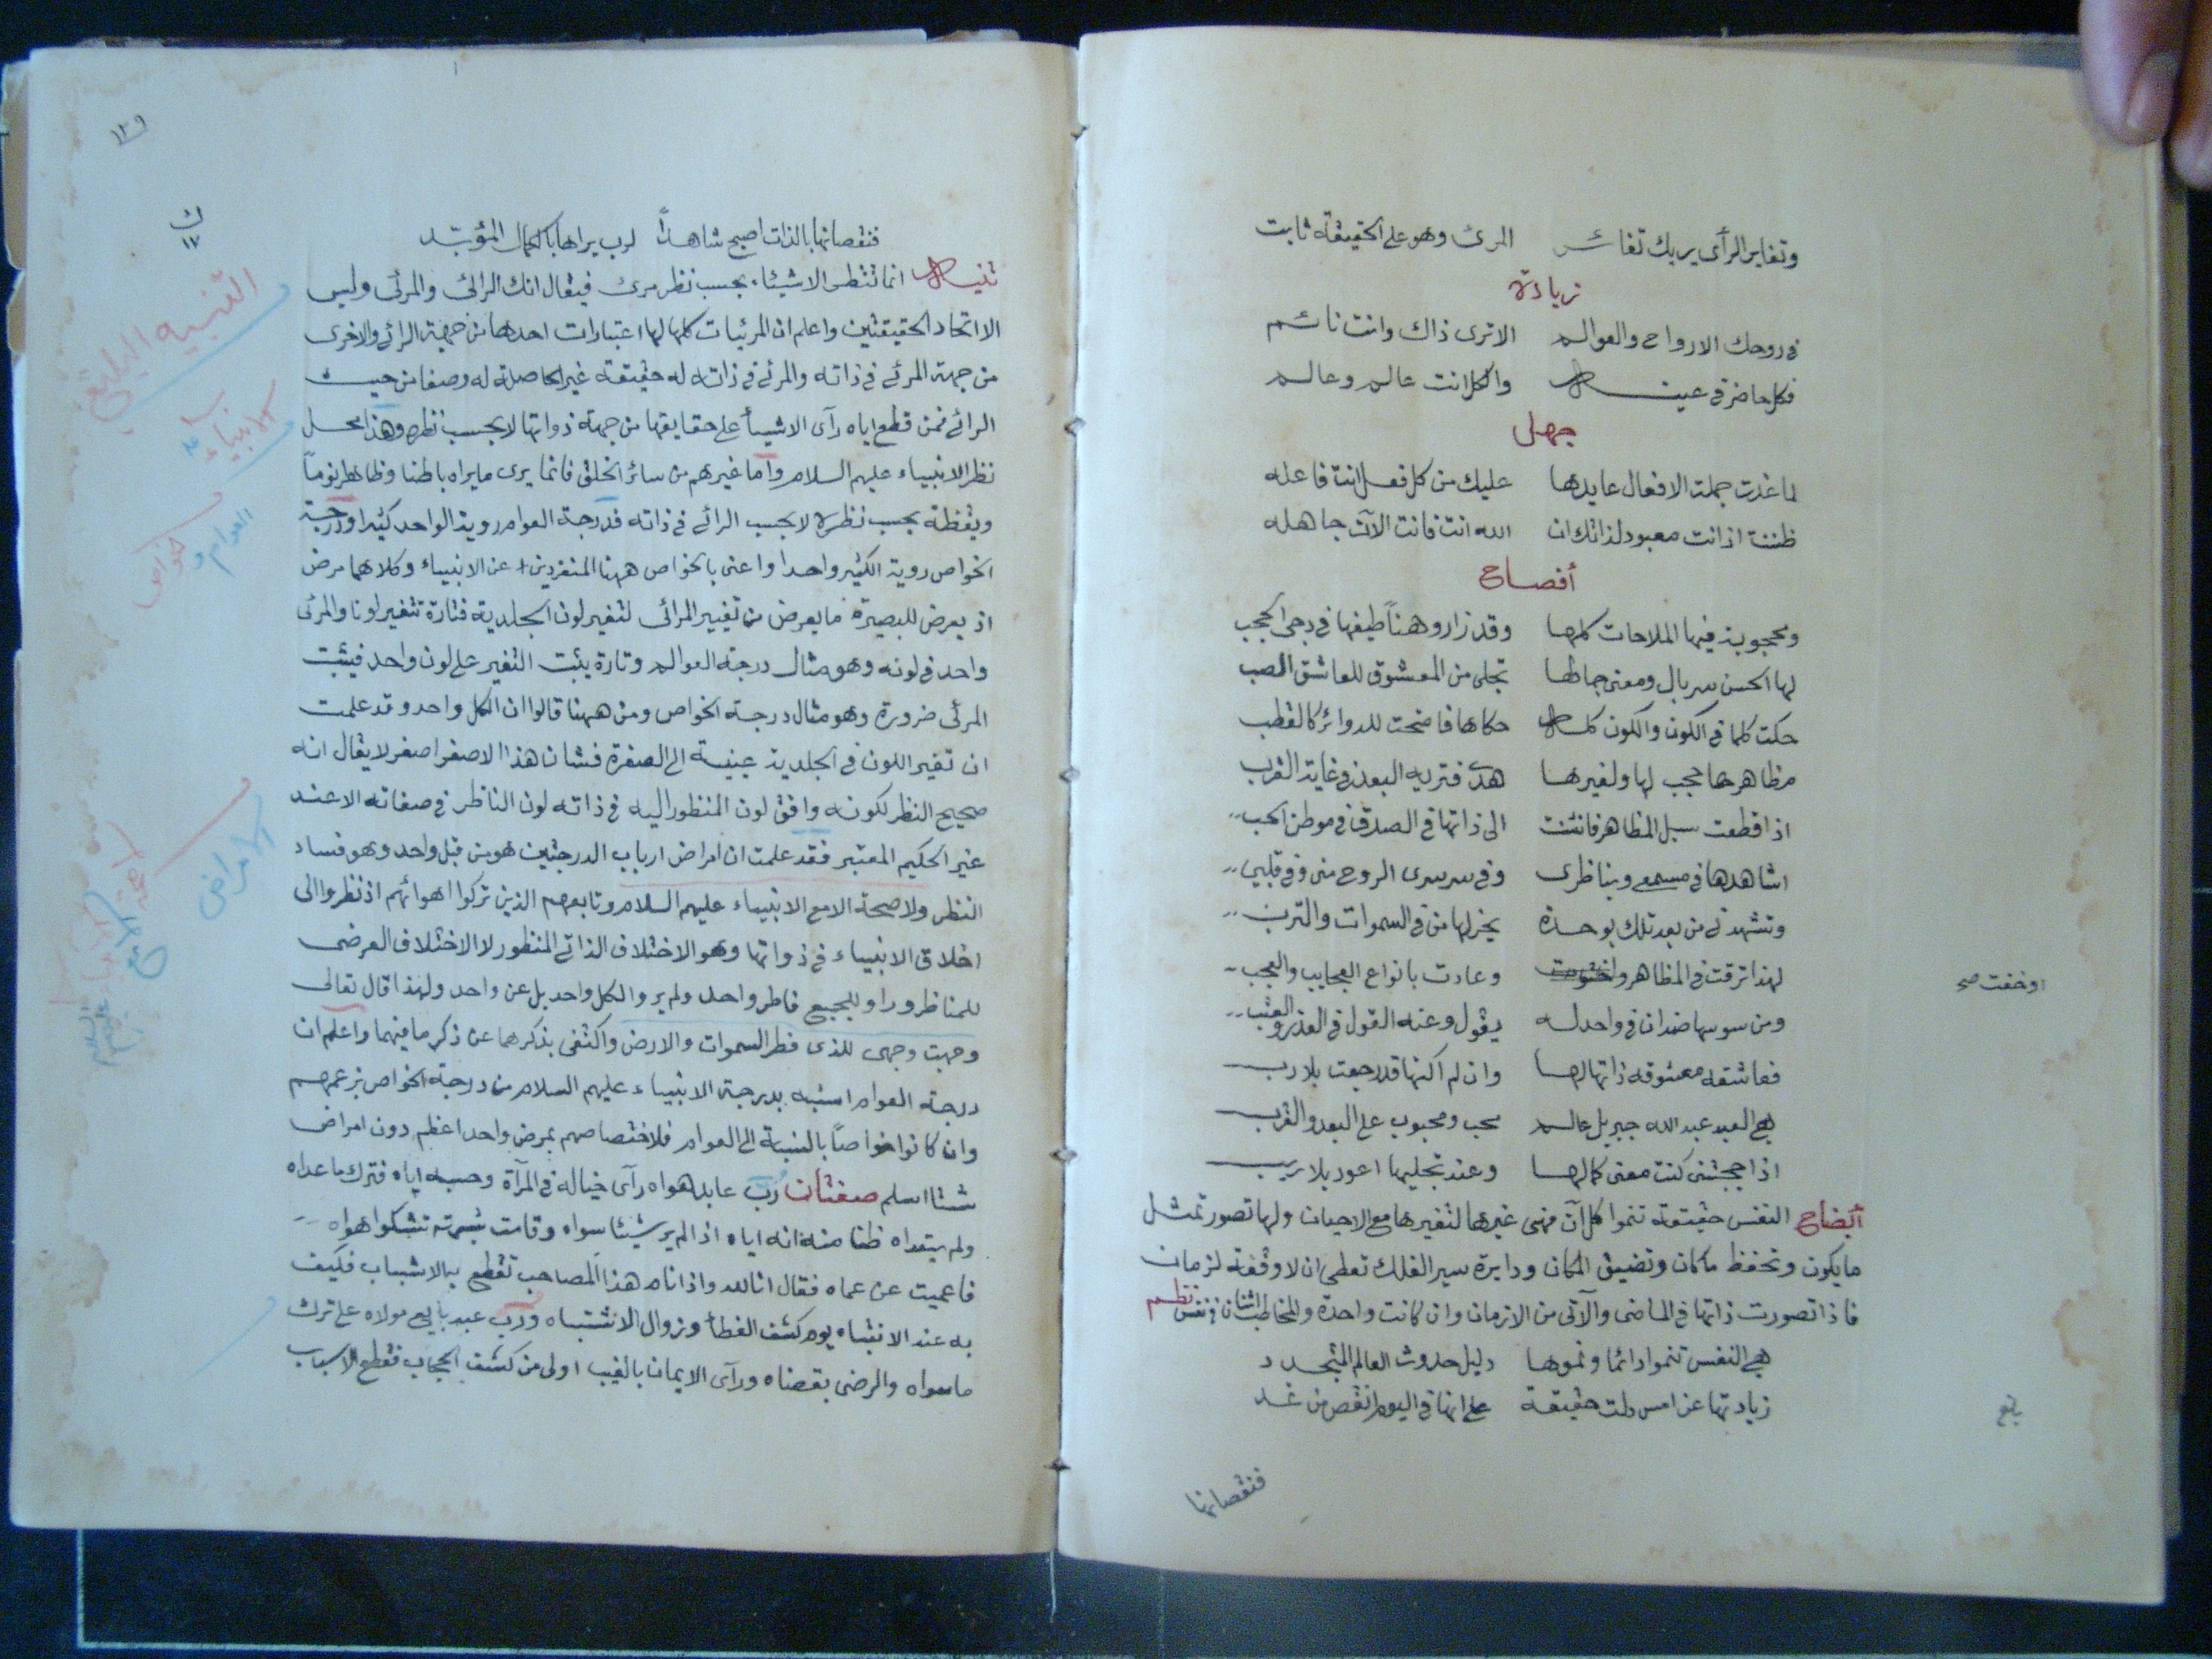 وتغاير الرأى يريك تغاير المرئ وهو على الحقيقة ثابت
زيادة
فى روحك الارواح والعوالم الا ترى ذاك وانت نائم
فكل حاضر فى عينه والكل انت عالم وعالم
جهل
لما غدت جملة الافعال عايدها عليك من كل فعل انت فاعله
ظننت اذ انت معبود لذاتك ان الله انت فانت الآن جاهله
أفصاح
ومحجوبة فيها الملاحات كلها وقد زار وهناً طيفها فى دجى الحجب
لها الحسن سربال ومعنى جمالها تجلى من المعشوق للعاشق الصب
حكت كلما فى الكون والكون كله حكاها فاضحت للدوائر كالقطب
مظاهرها حجب لها ولغيرها هدى فتريه البعد فى غاية القرب
اذا قطعت سبل المظاهر فانثنت الى ذاتها فى الصدق فى موطن الحب
اشاهدها فى مسمعى وبناظرى وفى سر سرى الروح منى وفى قلبي
وتشهد لى من بعد تلك بوحدة يخر لها من فى السموات والترب
لهذا ترقت فى المظاهر واختفت وعادت بانواع العجايب والعجب
اوخفت صح
ومن سوسها ضدان فى واحد له يقول وعنه القول فى العذر والعتب
فعاشقه معشوقه ذاتها لها وان لم اكنها قد رجعت بلا رب
هى العبد عبد الله جبريل عالم محب ومحبوب على البعد والقرب
اذا حجبتنى كنت معنى كمالها وعند تجليها اعود بلا ريب
أيضاح النفس حقيقة تنموا كل آن فهى غيرها لتغيرها مع الاحيان ولها تصور تمثل
ما يكون وتحفظ ما كان وتضيق المكان ودايرة سير الفلك تعطى ان لا وقفة لزمان
فاذا تصورت ذاتها فى الماضى والآتى من الازمان وان كانت واحدة والمخاطب اثنان فى نفس نظم
هى النفس تنموا دائما ونموها دليل حدوث العالم المتجدد
زيادتها عن امس دلت حقيقة على انها فى اليوم انقص من غد
بلغ
فنقصانها
١٢٩
ك
١٧
فنقصانها بالذات اصبح شاهداً لرب يراها بالكمال المؤبد
تنبيه انما تنظر الاشياء بحسب نظر مرئ فيقال انك الرائى والمرئى وليس
الا اتحاد الحقيقتين واعلم ان المرئيات كلها لها اعتبارات احدها من جهة الرائى والاخرى
من جهة المرئى فى ذاته والمرئى فى ذاته له حقيقة غير الحاصلة له وصفا من حيث
الرائى فمن قطع اياه رآى الاشيأ على حقايقها من جهة ذواتها لا بحسب نظره وهذا محل
نظر الانبياء عليهم السلام واما غيرهم من سائر الخلق فانما يرى ما يراه باطنا وظاهرا نوماً
ويقظة بحسب نظره لا بحسب الرائى فى ذاته فدرجة العوام روية الواحد كثيرا ودرجة
الخواص روية الكثير واحدا واعنى بالخواص ههنا المنفردين عن الانبياء وكلاهما مرض
اذ يعرض للبصيرة ما يعرض من تغيير المرائى لتغير لون الجلدية فتارة تتغير لونا والمرئى
واحد فى لونه وهو مثال درجة العوالم وتارة يثبت التغير على لون واحد فيثبت
المرئى ضرورة وهو مثال درجة الخواص ومن ههنا قالوا ان الكل واحد وقد علمت
ان تغير اللون فى الجلدية عينية الى الصفرة فشان هذا الاصفر اصفر لا يقال انه
صحيح النظر لكونه وافق لون المنظور اليه فى ذاته لون الناظر فى صفاته الا عند
غير الحكيم المعتبر فقد علمت ان امراض ارباب الدرجتين هو من قبل واحد وهو فساد
النظر ولا صحة الا مع الانبياء عليهم السلام وتابعهم الذين تركوا اهوائهم اذ نظروا الى
اخلاق الانبياء فى ذواتها وهو الاختلاف الذاتى المنظور لا الاختلاف العرضى
للمناظر وراو للجميع فاطر واحد ولم يروا الكل واحد بل عن واحد ولهذا قال تعالى
وجهت وجهى للذى فطر السموات والارض واكتفى بذكرهما عن ذكر ما فيهما واعلم ان
درجة العوام اشبه بدرجة الانبياء عليهم السلام من درجة الخواص بزعمهم
وان كانوا خواصاً بالنسبة الى العوام فلاختصاصهم بمرض واحد اعظم دون امراض
شتا اسلم صفتان رب عابد هواه رآى خياله فى المرآة وحسبه اياه فترك ما عداه
ولم يتعداه ظنا منه انه اياه اذا لم ير شيئا سواه وقامت تشكوا هواه
فاعميت عن عماه فقال انا لله واذا نام هذا المصاحب تقطع به الاسباب فكيف
به عند الانتباه يوم كشف الغطأ وزوال الاشتباه ورب عبد بايع مولاه على ترك
ما سواه والرضى بقضاه ورآى الايمان بالغيب اولى من كشف الحجاب فقطع الاسباب
التنبيه البديع
للانبياء
العوام و
خواص
الامراض